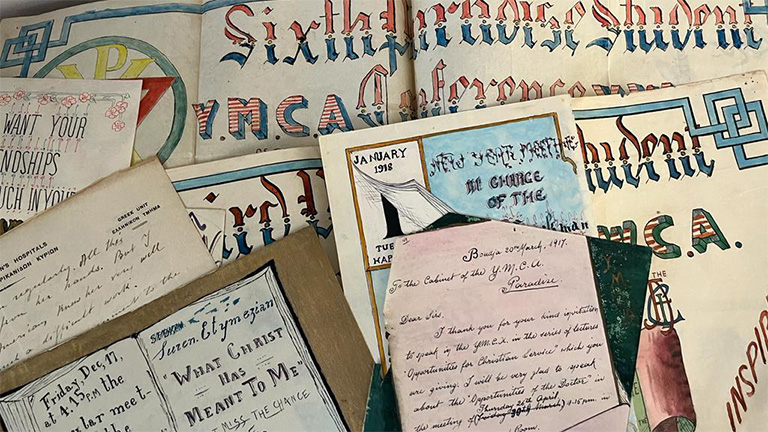 Sixth Paradise Student
Y.M.C.A. Conference
Paradise Student
WANT YOUR
NDSHIPS
UCH IN YOUR
N'S HOSPITALS
GREEK UNIT
ΕΛΛΗΝΙΚΟΝ ΤΜΗΜΑ
regularly. All this
her hands. But I
knew her very well
a difficult work.
Third
Friday, Dec, 17,
at 4.15 P.M the
ular meet-
Suren Etymezian
"WHAT CHRIST
HAS
MEANT TO ME"
MISS THE CHANCE
JANUARY
1918
TUE
NEW YEAR MEETING
IN CHARGE
OF THE
Student
Y.M.C.A.
THE
INSPIR
Boudja 20th March, 1917.
To the Cabinet of the Y.M.C.A.
Paradise.
Dear Sirs,
I thank you for your kind invitation
to speak in the Y.M.C.A. in the series of lectures
"Opportunities for Christian Service" which you
are giving. I will be very glad to speak
about the "Opportunities of the Doctor" in
Thursday 26th April
the meeting of (Friday 30th March) 4.15 p.m. in
Room.